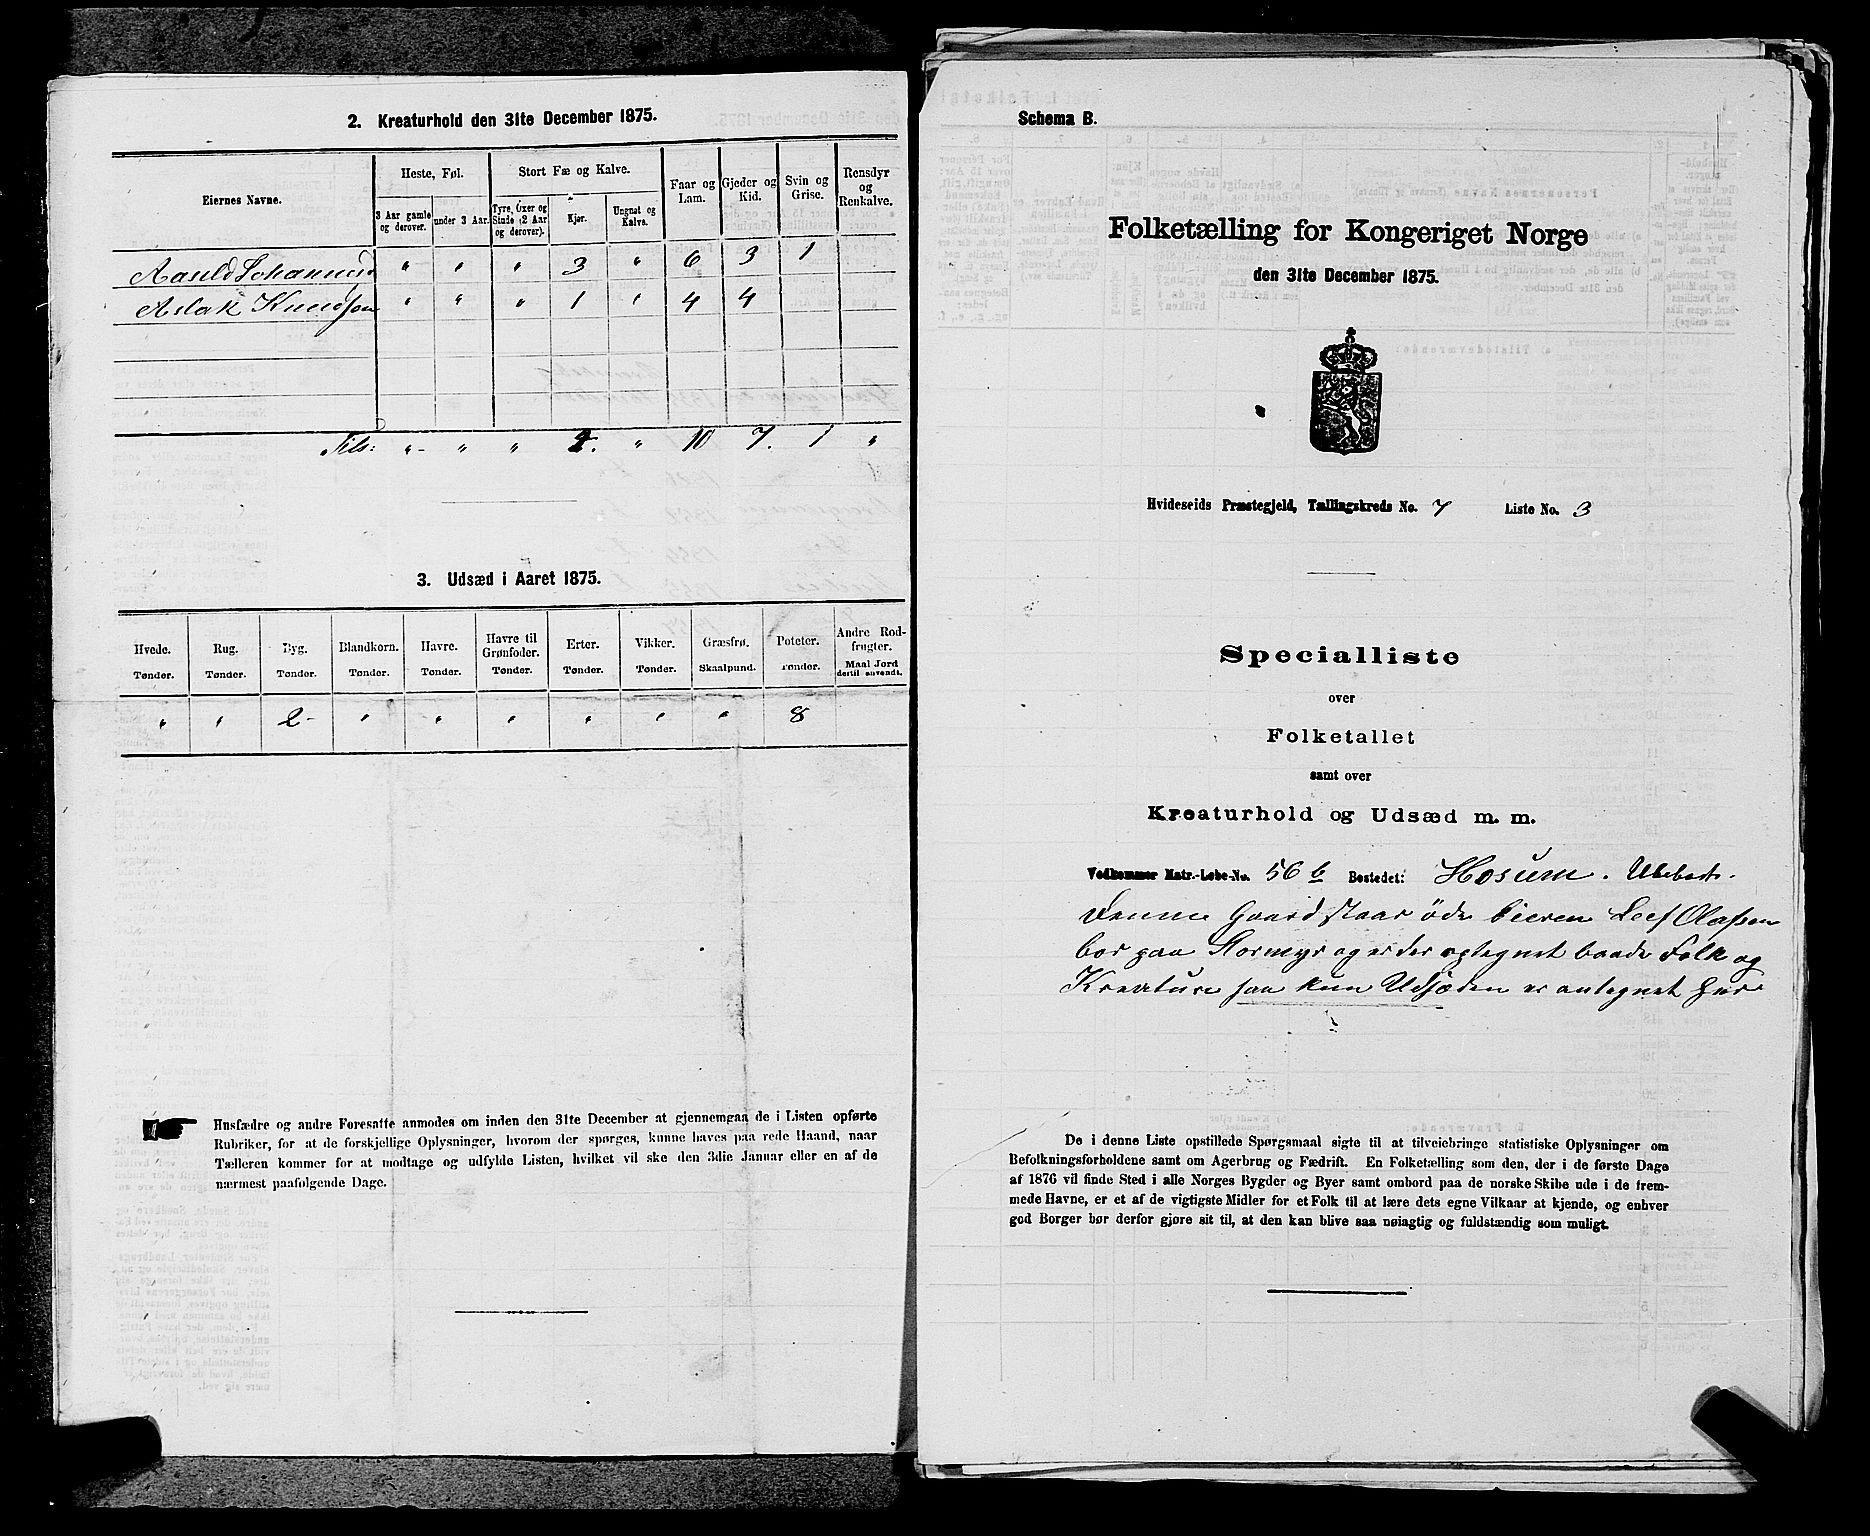 2. Kreaturhold den 31te December 1875.
Eiernes Navne.
Heste, Føl.
Stort Fæ og Kalve.
Faar og Lam.
Gjeder og Kid.
Svin og Grise.
Rensdyr og Renkalve.
3 Aar gamle og derover.
under 3 Aar.
Tyre, Oxer og Stude (2 Aar og derover).
Kjør.
Ungnøt og Kalve.
" " " 3 " 6 3 1
Aslak Knudsen " " " 1 " 4 4
Tils: " " " 4. " 10 7. 1 "
3. Udsæd i Aaret 1875.
Hvede. Rug. Byg. Blandkorn. Havre. Havre til Grønfoder. Erter. Vikker. Græsfrø. Poteter. Andre Rodfrugter.
Tønder. Tønder. Tønder. Tønder. Tønder. Tønder. Tønder. Tønder. Skaalpund. Tønder. Maal Jord dertil anvendt.
" " 2 " " " " " " 8
Husfædre og andre Foresatte anmodes om inden den 31te December at gjennemgaa de i Listen opførte
Rubriker, for at de forskjellige Oplysninger, hvorom der spørges, kunne haves paa rede Haand, naar
Tælleren kommer for at modtage og udfylde Listen, hvilket vil ske den 3die Januar eller en af de
nærmest paafølgende Dage.
Schema B.
Folketælling for Kongeriget Norge
den 31te December 1875.
Hvideseids Præstegjeld, Tællingskreds No. 7 Liste No. 3
Specialliste
over
Folketallet
samt over
Kreaturhold og Udsæd m. m.
Vedkommer Matr.-Løbe-No. 56 b Bostedet: Hosum. Ubebot.
Denne Gaard staar øde Eieren Leif Olafsen
bor paa Stormyr og er der optegnet baade Folk og
Kreature saa kun Udsæden er antegnet her
De i denne Liste opstillede Spørgsmaal sigte til at tilveiebringe statistiske Oplysninger om
Befolkningsforholdene samt om Agerbrug og Fædrift. En Folketælling som den, der i de første Dage
af 1876 vil finde Sted i alle Norges Bygder og Byer samt ombord paa de norske Skibe ude i de frem-
mede Havne, er et af de vigtigste Midler for et Folk til at lære dets egne Vilkaar at kjende, og enhver
god Borger bør derfor gjøre sit til, at den kan blive saa nøiagtig og fuldstændig som muligt.